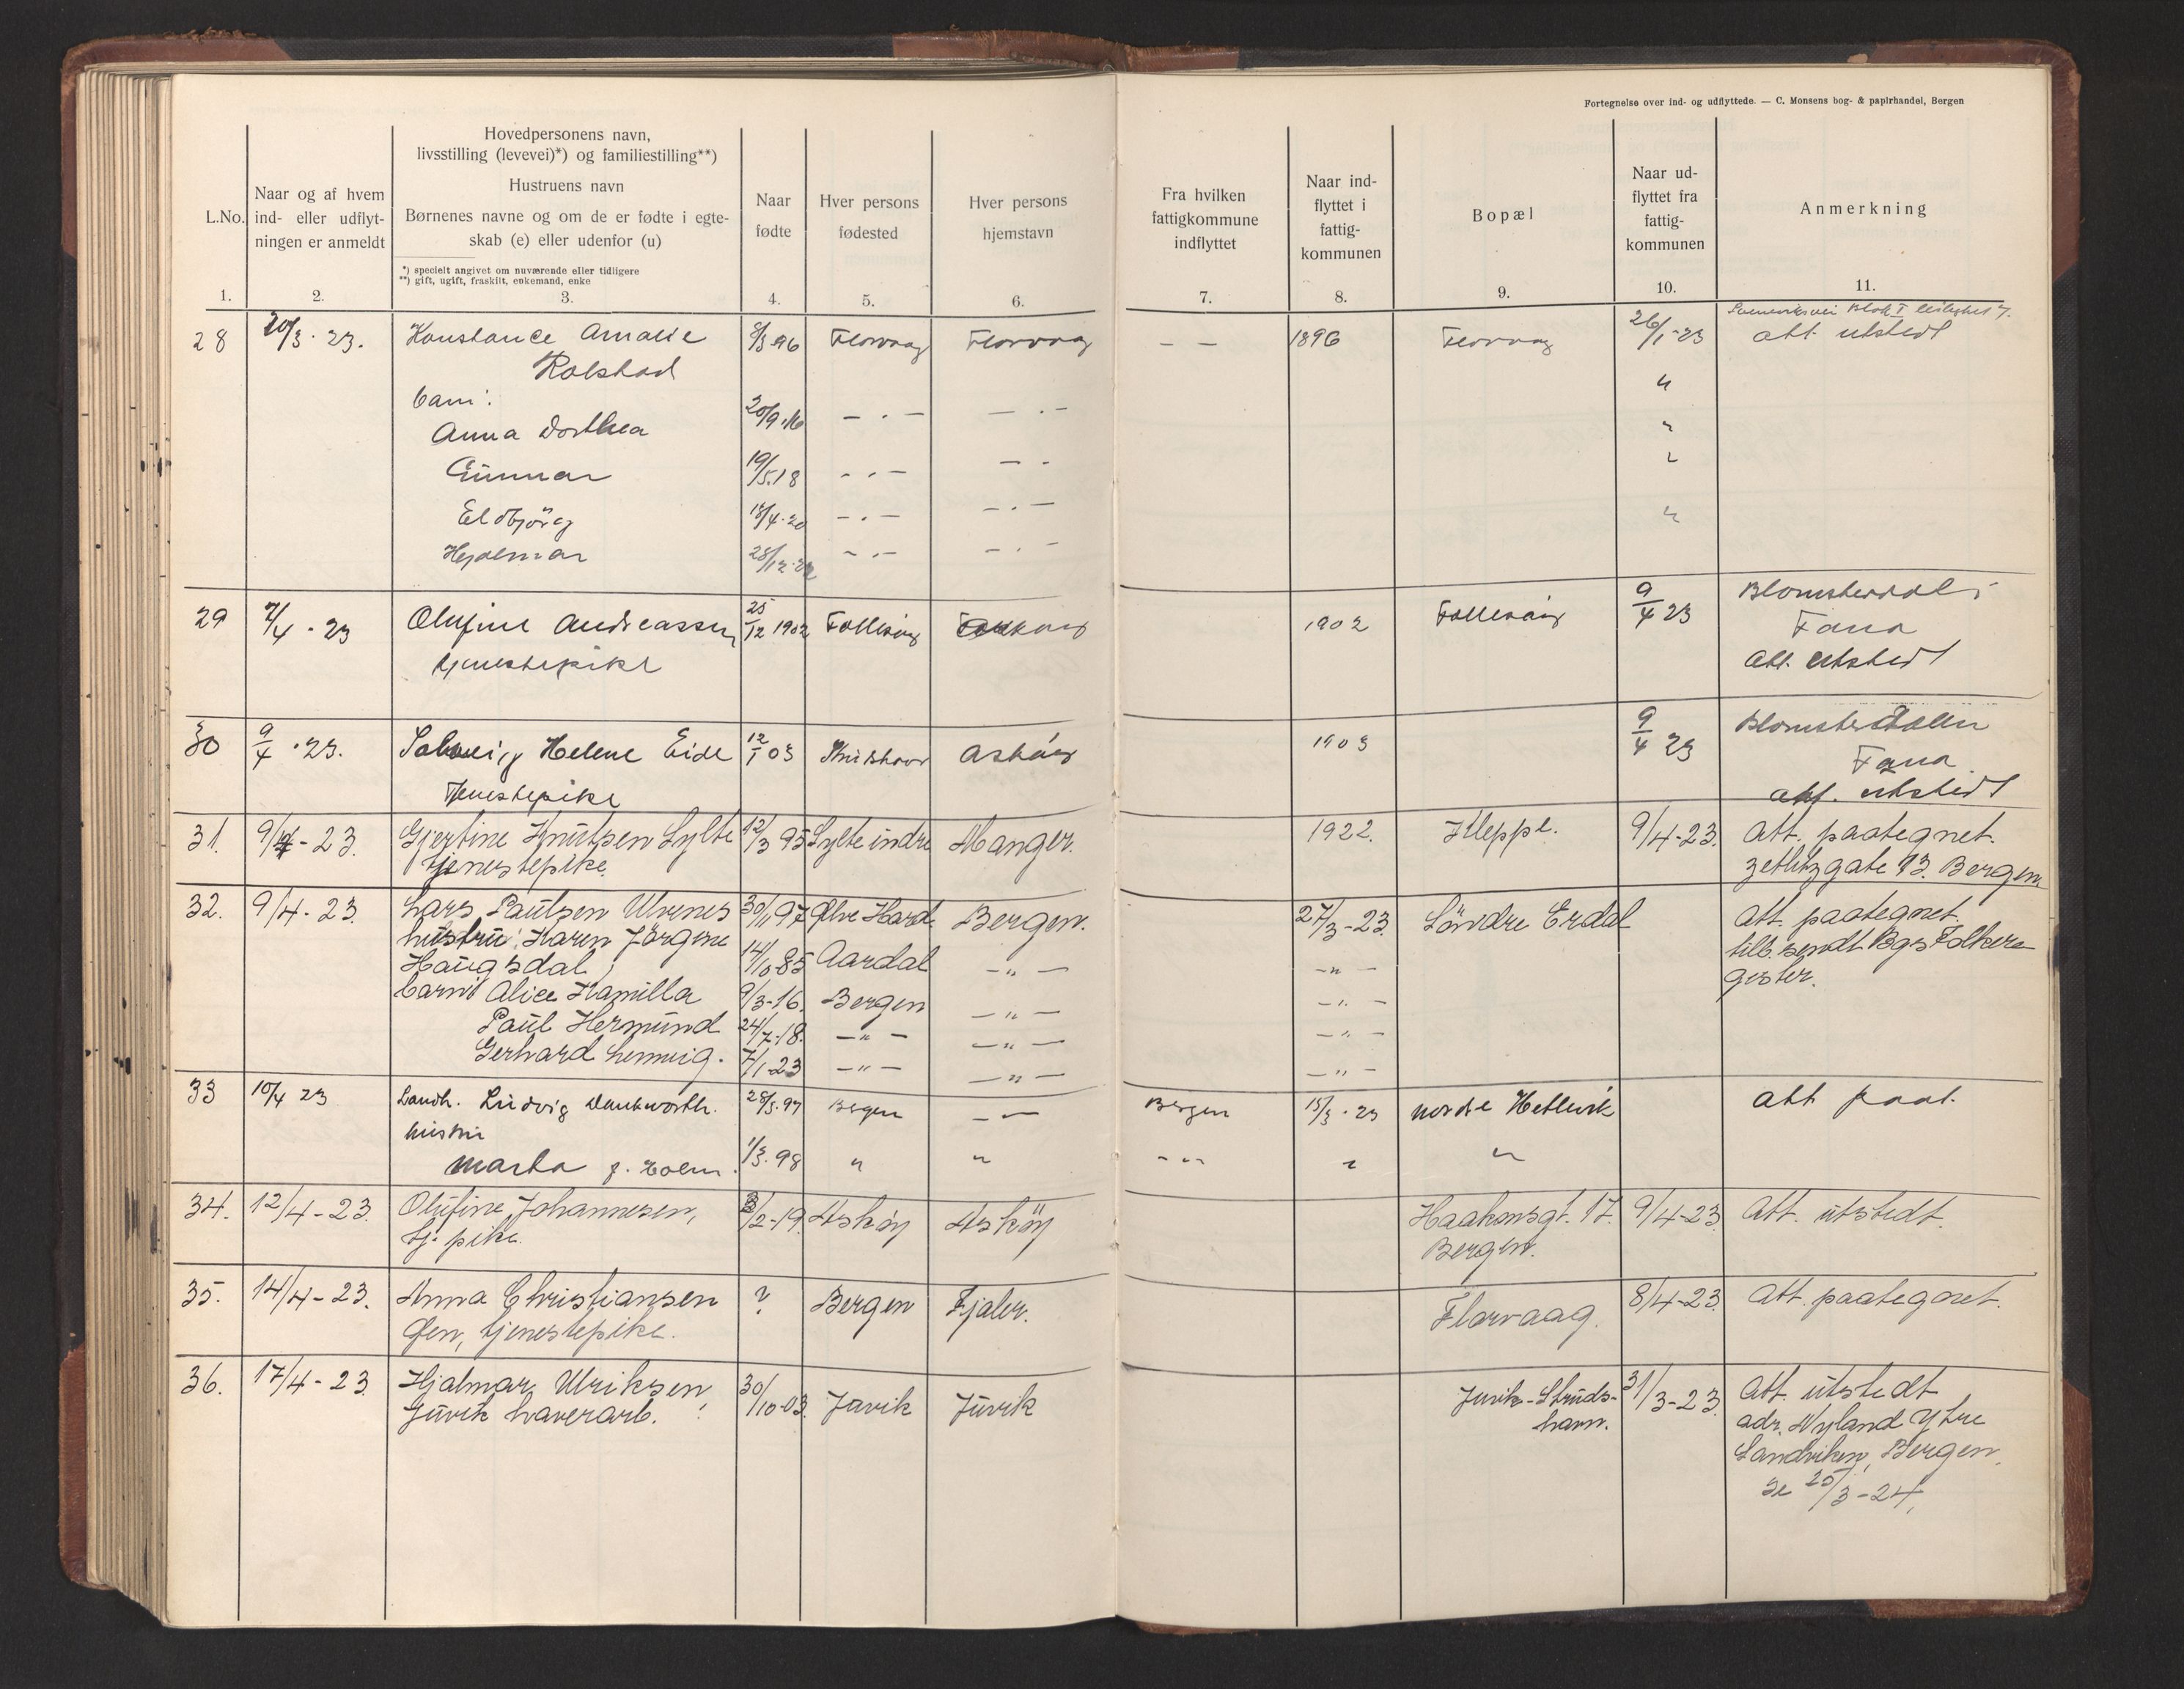 Fortegnelse over ind- og udflyttede. — C. Monsens bog- & papirhandel, Bergen
L.No.
Naar og af hvem
ind- eller udflyt-
ningen er anmeldt
Hovedpersonens navn,
livsstilling (levevei)*) og familiestilling**)
Hustruens navn
Børnenes navne og om de er fødte i egte-
skab (e) eller udenfor (u)
*) specielt angivet om nuværende eller tidligere
**) gift, ugift, fraskilt, enkemand, enke
Naar
fødte
Hver persons
fødested
Hver persons
hjemstavn
Fra hvilken
fattigkommune
indflyttet
Naar ind-
flyttet i
fattig-
kommunen
Bopæl
Naar ud-
flyttet fra
fattig-
kommunen
Anmerkning
1. 2. 3. 4. 5. 6. 7. 8. 9. 10. 11.
Blok I leilighet 7.
28 20/3 · 23. Konstance Amalie 8/3 96 Florvaag Florvaag — — 1896 Florvaag 26/1-23 att. utstedt
Rolstad
barn: "
Anna Dorthea 20/9.16 — . — — . — "
Gunnar 19/5.18 — . — — . "
Eldbjörg 18/4.20 — . — — . — "
Hjalmar 28/12.22 — . — — . —
29 7/4 · 23 Olufine Andreassen 25/12 1902 Follesöy Askøy 1902 Follesöy 9/4 23 Blomsterdal i
tjenestepike Fana
att. utstedt
30 9/4 · 23. Solveig Helene Eide 12/1 03 Struishavn Askøy 1903 9/4 23 Blomsterdalen
Tjenestepike Fana
att. utstedt
31. 9/4 - 23. Gjertine Knutsen Sylte 12/3 95 Sylte indre Manger. 1922. Kleppe. 9/4-23. Att. paategnet.
tjenestepike. Zetlitzgate 13. Bergen.
32. 9/4 - 23. Lars Paulsen Ulvenes 30/11 97 Ølve Hard. Bergen. 27/3-23. Söndre Erdal Att. paategnet.
hustru: Karen Jörgine tilb. sendt Bgs Folkere
Haugsdal 14/10 85 Aardal — " — — " — gister.
barn: Alice Kamilla 9/3-16. Bergen — " — — " —
Paul Hermund 24/7-18. — " — — " — — " —
Gerhard Lennvig. 7/1-23 — " — — " — — " —
33 10/4 23 Landh. Ludvig Dankworth. 28/5.97 Bergen — — Bergen 15/3 · 23 nordre Hetlevik att paat.
hustru
Marta f. Holm. 1/3.98 " " - " " "
34. 12/4 - 23. Olufine Johannesen, 3/2-19. Asköy Asköy Haakonsgt. 17. 9/4-23 Att. utstedt.
tj. pike. Bergen.
35. 14/4 - 23. Anna Christiansen ? Bergen Fjaler. Florvaag. 8/4-23. Att. paategnet.
Øen, tjenestepike.
36. 17/4 - 23. Hjalmar Ulriksen 30/10-03. Juvik Juvik Juvik - Struds- 31/3-23. Att. utstedt
Juvik haverarb. havn. adr. Nyland Ytre
Sandviken, Bergen.
Se 25/3-24,